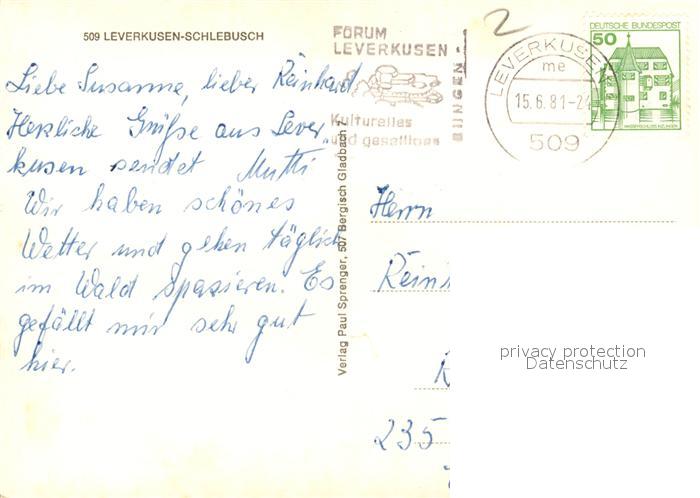 509 LEVERKUSEN-SCHLEBUSCH
Liebe Susanne, lieber Reinhard
Herzliche Grüße aus Lever
kusen sendet Mutti
Wir haben schönes
Wetter und gehen täglich
im Wald spazieren. Es
gefällt mir sehr gut
hier.
Verlag Paul Sprenger, 507 Bergisch Gladbach 1
FORUM
LEVERKUSEN
Kulturelles
und geselliges
2
LEVERKUSEN
me
15.6.81-2
509
DEUTSCHE BUNDESPOST
50
WASSERSCHLOSS INZLINGEN
Herrn
Rein
R
235
privacy protection
Datenschutz